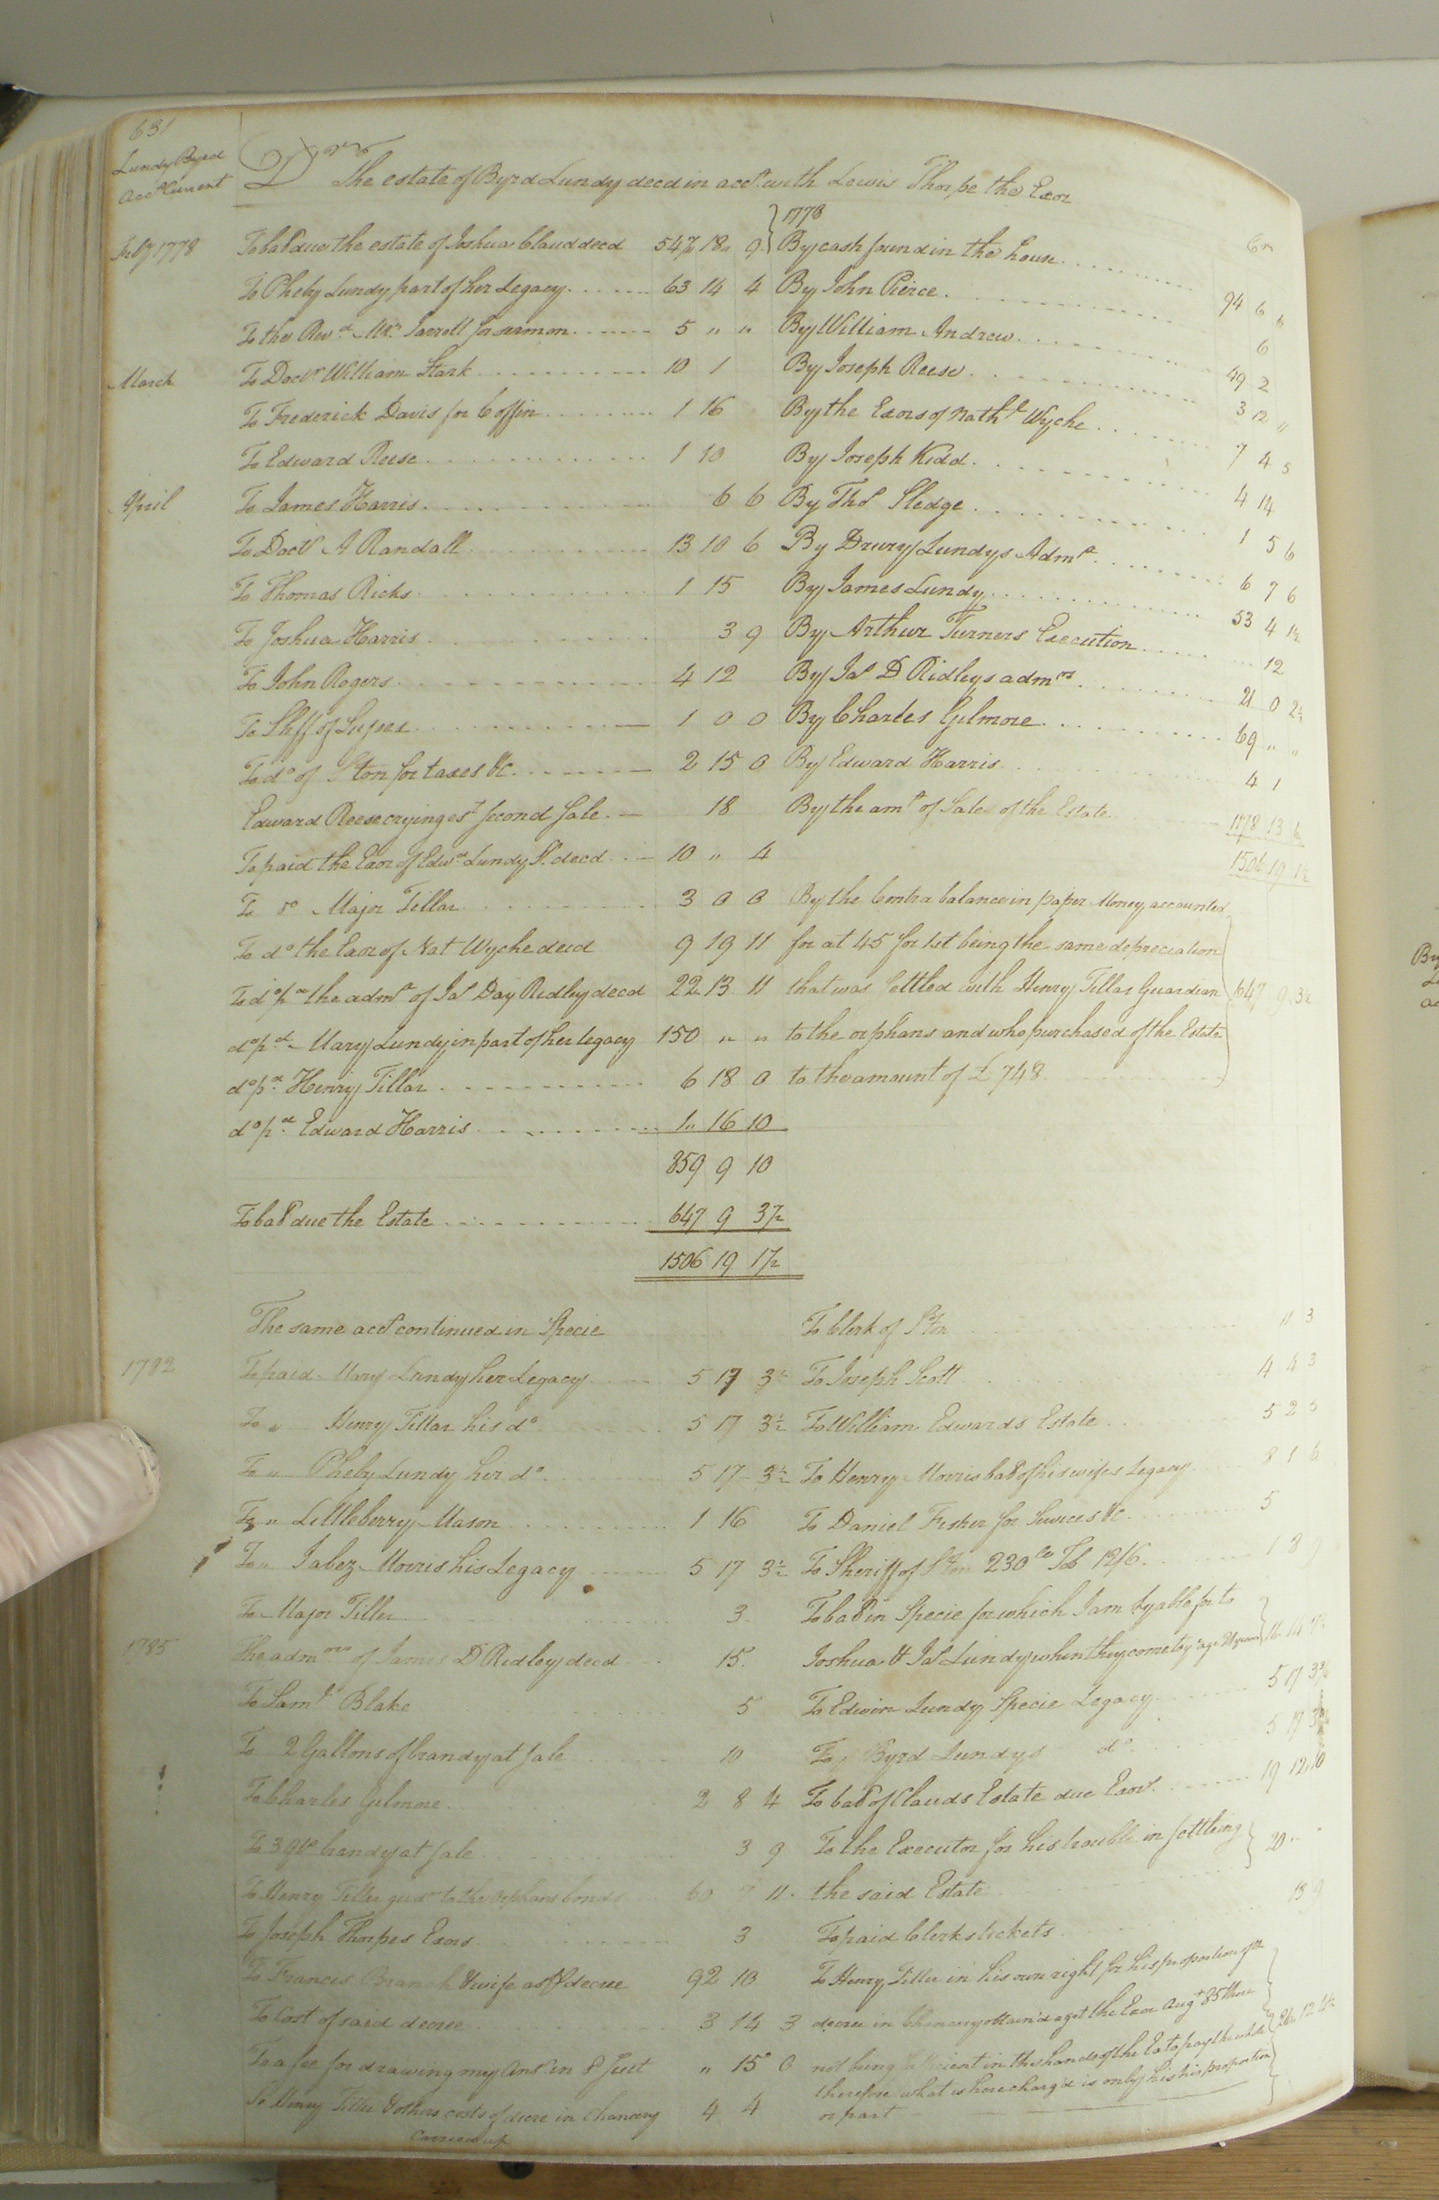 631
Lundy Byrd
Accᵗ Current
Dr
The estate of Byrd Lundy decd in accᵗ with Lewis Thorpe the Exor
July 1778 To balᵉ due the estate of Joshua Claud decd 547 18 9
To Pheby Lundy part of her Legacy 63 14 4
To the Revᵈ Mr Jarrell for sermon 5 " "
March To Doctʳ William Stark 10 1
To Frederick Davis for Coffin 1 16
To Edward Reese 1 10
April To James Harris 6 6
To Doctʳ A Randall 13 10 6
To Thomas Ricks 1 15
To Joshua Harris 3 9
To John Rogers 4 12
To Shff of Sussex 1 0 0
To dᵒ of Sᵒton for taxes &c 2 15 0
Edward Reese crying esᵗ second Sale 18
To paid the Exor of Edwᵈ Lundy Sʳ decd 10 " 4
To dᵒ Major Tillar 3 0 0
To dᵒ the Exor of Nat Wyche decd 9 19 11
To dᵒ pᵈ the admʳ of Jaˢ Day Ridley decd 22 13 11
dᵒ pᵈ Mary Lundy in part of her legacy 150 " "
dᵒ pᵈ Henry Tillar 6 18 0
dᵒ pᵈ Edward Harris 1 16 10
859 9 10
To balᵉ due the Estate 647 9 3½
1506 19 1½
1778 Cr
By cash found in the house 94 6
By John Pierce 6
By William Andrew 49 2
By Joseph Reese 3 12 "
By the Exors of Nathˡ Wyche 7 4 5
By Joseph Kidd 4 14
By Thoˢ Sledge 1 5 6
By Drury Lundys Admʳ 6 7 6
By James Lundy 53 4 1½
By Arthur Turners Execution 12
By Jaˢ D Ridleys admʳˢ 21 0 2½
By Charles Gilmore 69 " "
By Edward Harris 4 1
By the amᵗ of Sale of the Estate 1178 13
1506 19 1½
By the Contra balance in paper Money accounted
for at 45 for 1st being the same depreciation
that was Settled with Henry Tillar Guardian 647 9 3½
to the orphans and who purchased of the Estate
to the amount of £ 748
The same accᵗ continued in Specie
1782 To paid Mary Lundy her Legacy 5 17 3½
To " Henry Tillar his dᵒ 5 17 3½
To " Pheby Lundy her dᵒ 5 17 3½
To " Littleberry Mason 1 16
To " Jabez Morris his Legacy 5 17 3½
To Major Tiller 3
1785 The admᵒʳˢ of James D Ridley decd 15
To Samˡ Blake 5
To 2 Gallons of brandy at sale 10
To Charles Gilmore 2 8 4
To 3 qts brandy at sale 3 9
To Henry Tiller guaʳ to the orphans bonds 60 7 11
To Joseph Thorpes Exors 3
To Frances Branch & wife as pʳ decree 92 10
To Cost of said decree 3 14 3
To a fee for drawing my Ansʳ in Sᵈ Suit " 15 0
To Henry Tiller & others costs of decree in Chancery 4 4
Carried up
To Clerk of Sᵒton 11 3
To Joseph Scott 4 4 3
To William Edwards Estate 5 2 5
To Henry Morris balᵉ of his wifes Legacy 8 1 6
To Daniel Fisher for Services &c 5
To Sheriff of Sᵒton 230 ᶫᵇˢ Tob 12/6 1 8 9
To balᵉ in Specie for which I am lyable for to
Joshua & Jaˢ Lundy when they come to yᵉ age 21 years
To Edwin Lundy Specie Legacy 5 17 3¾
To Byrd Lundys dᵒ 5 17 3¾
To balᵉ of Clauds Estate due Exorˢ 19 12 10
To the Executor for his trouble in settleing 20 " "
the said Estate
To paid Clerks tickets 18 9
To Henry Tiller in his own right for his proportion of a
decree in Chancery obtain'd agst the Exor Augᵗ 85 there
not being sufficient in the hands of the Ex to pay the whole
therefore what is here charg'd is only his proportion
or part